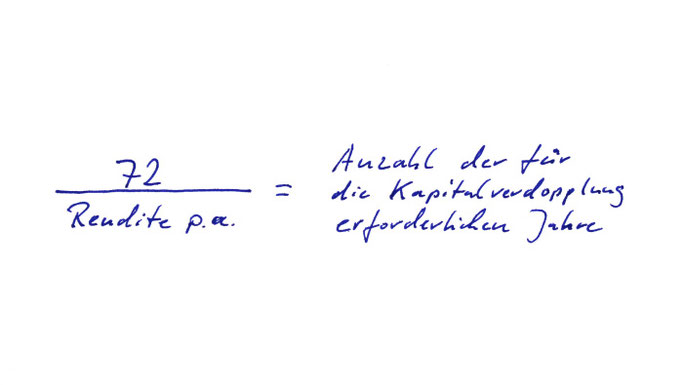 72
Rendite p.a.
=
Anzahl der für
die Kapitalverdopplung
erforderlichen Jahre